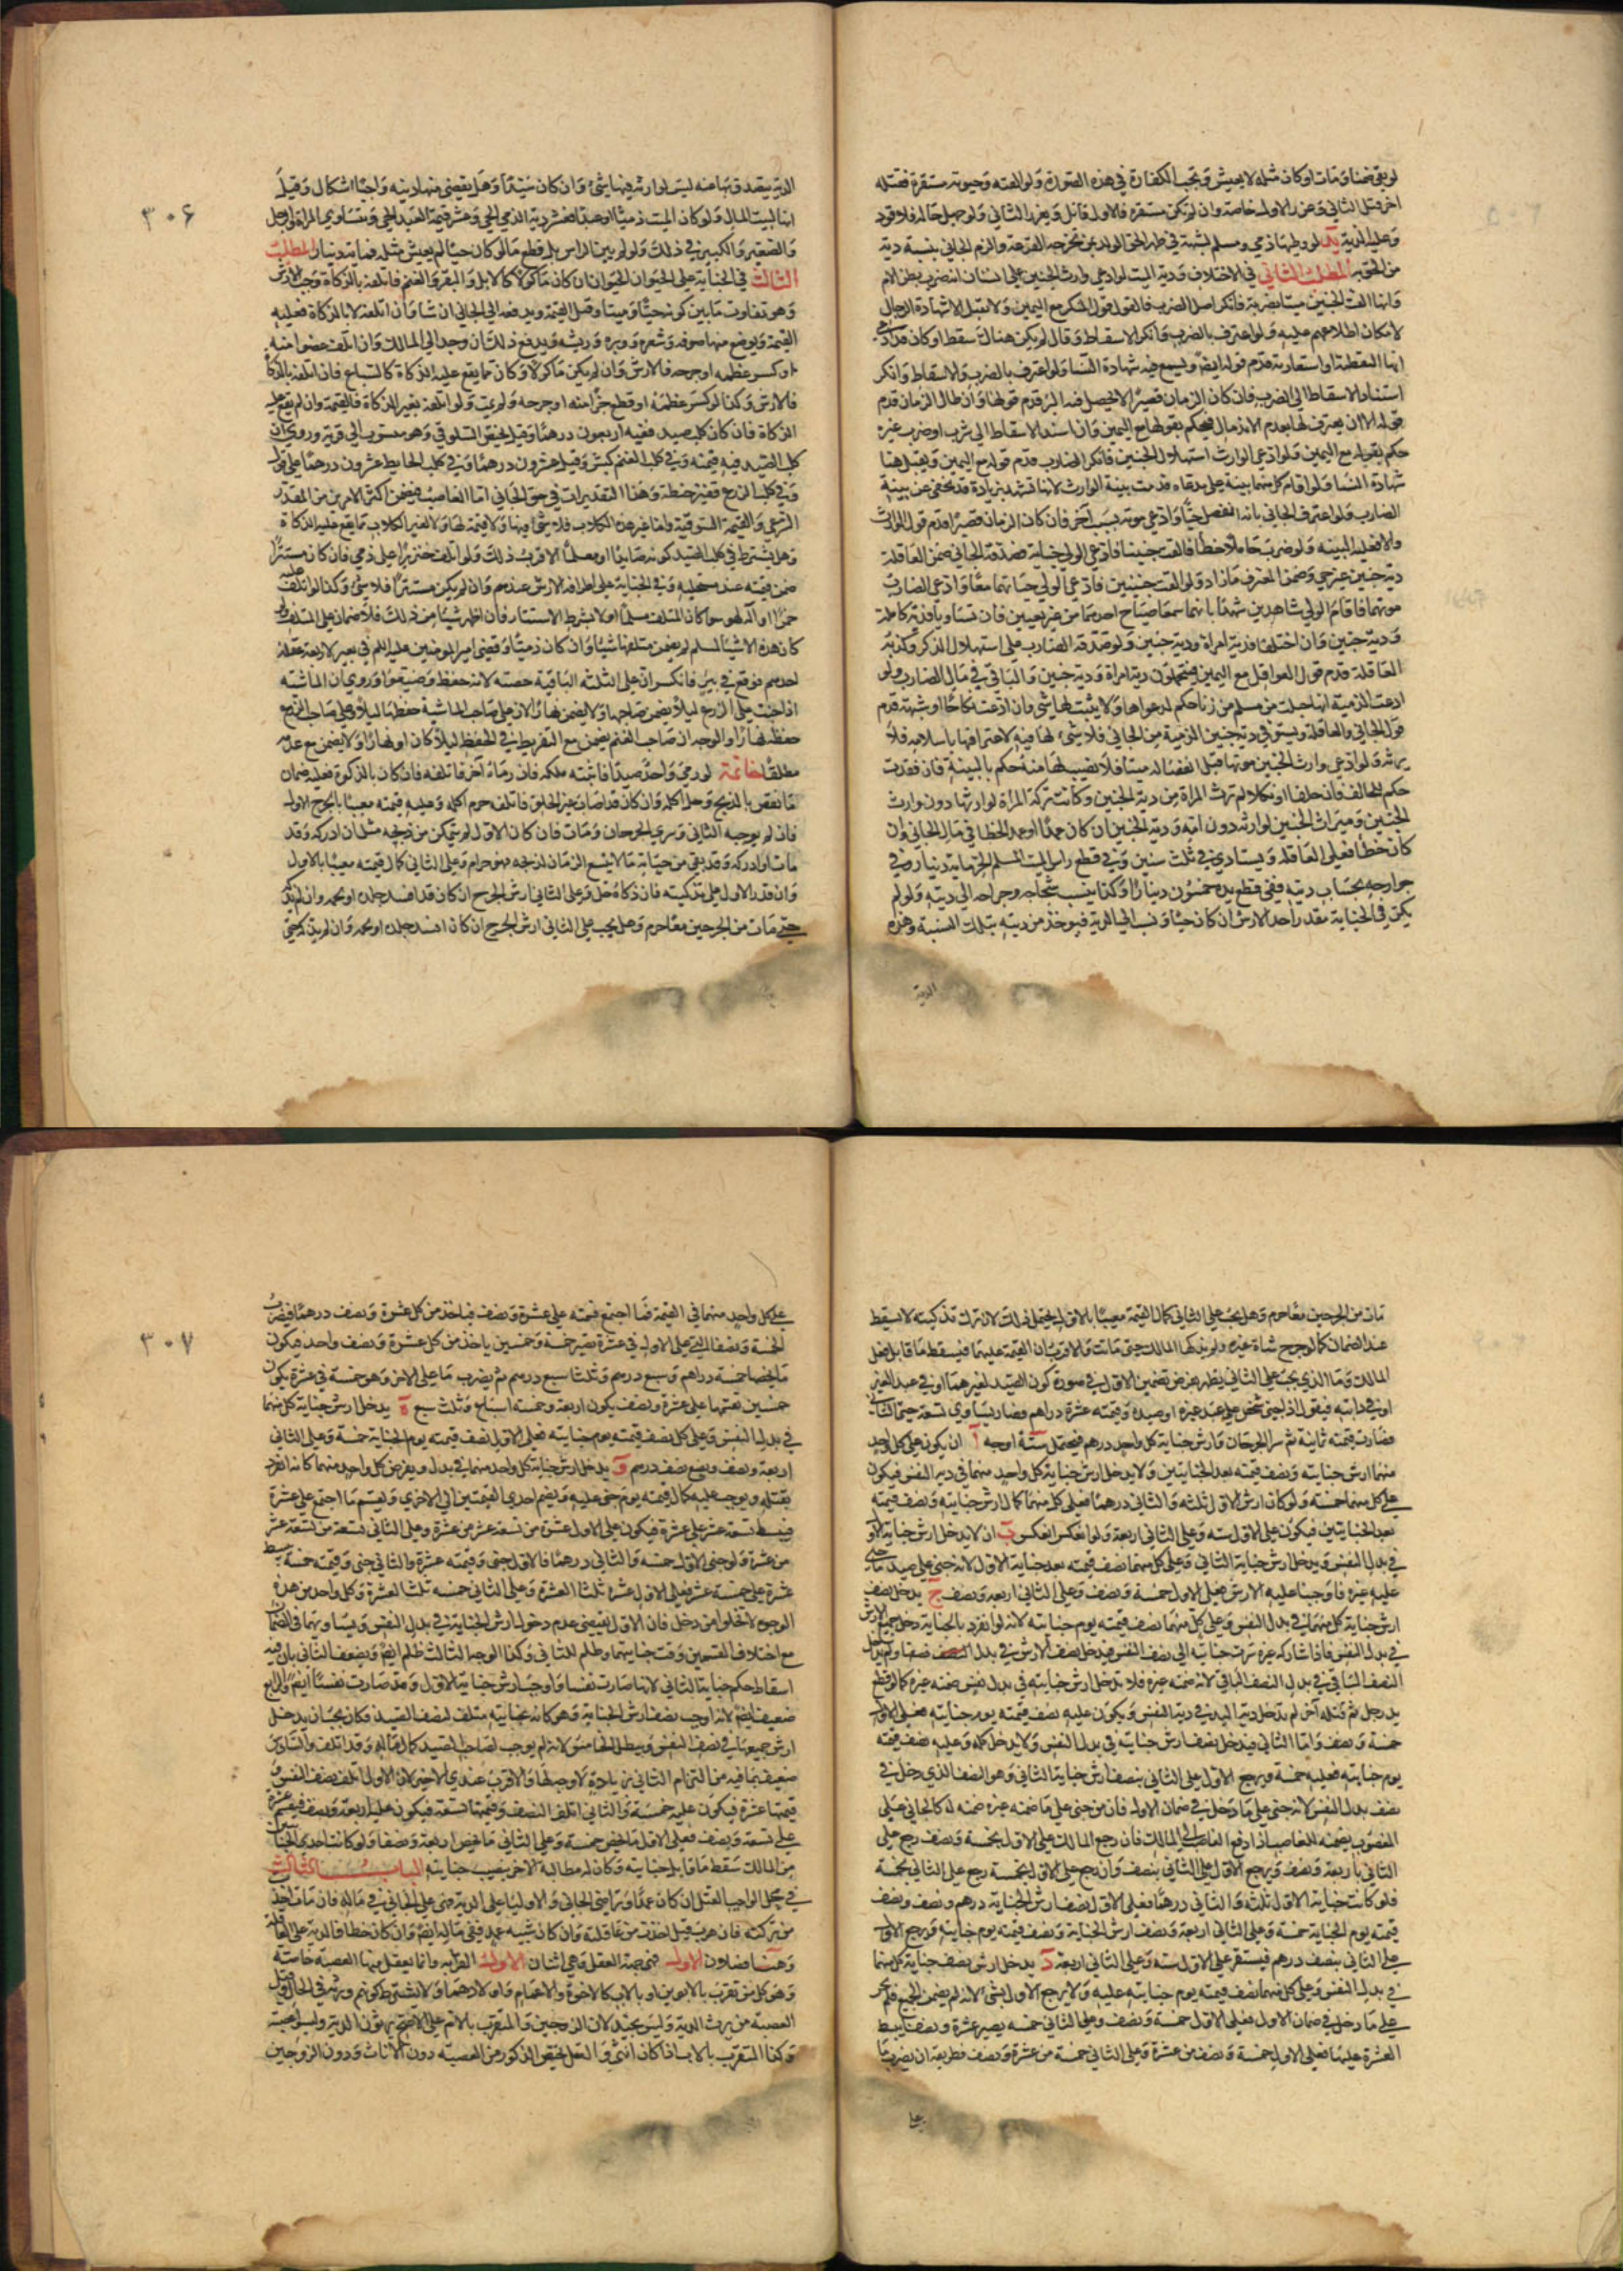 لو بقي ضمنا ومات او كان مثله لا يعيش وتجب الكفارة في هذه الصورة ولو القته وحيوته مستقرة فقتله
اخر قتل الثاني وعزر الاول خاصة وان لم تكن مستقرة فالاول قاتل ويعزر الثاني ولو جهل حاله فلا قود
وعليه الدية يك لو وطئها ذمي ومسلم لشبهة في طهر الحق الولد بمن تخرجه القرعة والزم الجاني بنسبة دية
من الحق به المطلب الثاني في الاختلاف ودية الميت لو ادعى وارث الجنين على انسان انه ضرب بطن الام
وانها القت الجنين ميتا بضربته فانكر اصل الضرب فالقول قول المنكر مع اليمين ولا تقبل الا شهادة الرجال
لامكان اطلاعهم عليه ولو اعترف بالضرب وانكر الاسقاط وقال لم يكن هناك سقط او كان قد ادعي
انها التقطته او استعارته قدم قوله ايضا ويسمع فيه شهادة النسا ولو اعترف بالضرب والاسقاط وانكر
استناد الاسقاط الى الضرب فان كان الزمان قصيرا لا يحصل فيه البرء قدم قولها وان طال الزمان قدم
قوله الا ان يعترف لها بعدم الاندمال فيحكم بقولها مع اليمين وان اسند الاسقاط الى شرب او ضرب غيره
حكم بقوله مع اليمين ولو ادعى الوارث استهلال الجنين فانكر الضارب قدم قوله مع اليمين ويقبل هنا
شهادة النسا ولو اقام كل منهما بينة على مدعاه قدمت بينة الوارث لانها تشهد بزيادة قد تخفى عن بينة
الضارب ولو اعترف الجاني بانه انفصل حيا وادعى موته بسبب آخر فان كان الزمان قصيرا قدم قول الوارث
والا فعليه البينة ولو ضرب حاملا خطأ فالقت جنينا فادعى الولي حياته فصدقه الجاني ضمن العاقلة
دية جنين غير حي وضمن المعترف ما زاد ولو القت جنينين فادعى الولي حياتهما معا وادعى الضارب
موتهما فاقام الولي شاهدين شهدا بانهما سمعا صياح احدهما من غير تعيين فان تساويا فدية كاملة
ودية جنين وان اختلفا فدية امراة ودية جنين ولو صدقه الضارب على استهلال الذكر وكذبته
العاقلة قدم قول العواقل مع اليمين فيتحملون دية امراة ودية جنين والباقي في مال الضارب ولو
ادعت الذمية انها حبلت من مسلم من زنا حكم لدعواها ولا يثبت لها شئ وان ادعت نكاحا او شبهة قدم
قول الجاني والعاقلة ويستوفي دية جنين الذمية من الجاني فلا شئ لها فيه لاعترافها باسلامه فلا
يرثه ولو ادعى وارث الجنين موتها قبل انفصاله ميتا فلا نصيب لها منه حكم بالبينة فان فقدت
حكم للحالف فان حلفا او نكلا لم ترث المراة من دية الجنين وكانت تركة المراة لوارثها دون وارث
الجنين وميراث الجنين لوارثه دون امه ودية الجنين ان كان عمدا او عمد الخطا في مال الجاني وان
كان خطأ فعلى العاقلة ويستادي في ثلث سنين وفي قطع راس الميت المسلم الحر مائة دينار وفي
جوارحه بحساب ديته ففي قطع يده خمسون دينارا وكذا ينسب شجاجه وجراحه الى ديته ولو لم
يكن في الجناية مقدر اخذ الارش ان كان حيا ونسب الى الدية فيوخذ من ديته بتلك النسبة وهذه
الدية
الدية يتصدق بها عنه ليس لوارثه فيها شئ وان كان ميتا وهل يقضى منها دينه واجبا اشكال وقيل
انها لبيت المال ولو كان الميت ذميا او عبدا فعشر دية الذمي الحي وعشر قيمة العبد الحي ويتساوى المراة والرجل
والصغير والكبير في ذلك ولو لم يبن الراس بل قطع ما لو كان حيا لم يعش مثله فمائة دينار المطلب
الثالث في الجناية على الحيوان الحيوان ان كان ماكولا كالابل والبقر والغنم فاتلفه بالذكاة وجب الارش
وهو تفاوت ما بين كونه حيا وميتا وقيل القيمة ويدفعه الى الجاني ان شا وان اتلفه لا بالذكاة فعليه
القيمة ويوضع منها صوفه وشعره ووبره وريشه ويدفع ذلك ان وجد الى المالك وان اتلف عضوا منه
او كسر عظمه او جرحه فالارش وان لم يكن ماكولا وكان مما يقع عليه الذكاة كالسباع فان اتلفه بالذكاة
فالارش وكذا لو كسر عظمه او قطع جزأ منه او جرحه ولم يمت ولو اتلفه بغير الذكاة فالقيمة وان لم يقع عليه
الذكاة فان كان كلب صيد ففيه اربعون درهما وقيل يختص السلوقي وهو منسوب الى قرية وروي ان
كلب الصيد فيه قيمته وفي كلب الغنم كبش وقيل عشرون درهما وفي كلب الحايط عشرون درهما على قول
وفي كلب الزرع قفيز حنطة وهذا التقديرات في حق الجاني اما الغاصب فيضمن اكثر الامرين من المقدر
الشرعي والقيمة السوقية واما غير هذه الكلاب فلا شئ فيها ولا قيمة لها ولا لغير الكلاب مما يقع عليه الذكاة
وهل يشترط في كلب الصيد كونه صايدا او معلما الاقرب ذلك ولو اتلف خنزيرا على ذمي فان كان مستترا
ضمن قيمته عند مستحليه وفي الجناية على اطرافه الارش عندهم وان لم يكن مستترا فلا شئ وكذا لو اتلف عليه
خمرا او آلة لهو سوا كان المتلف مسلما او لا بشرط الاستتار فان اظهر شيئا من ذلك فلا ضمان على المتلف ولو
كان هذه الاشيا لمسلم لم يضمن متلفها شيئا وان كان ذميا وقضى امير المومنين عليه السلم في بعير لاربعة عقله
احدهم فوقع في بير فانكسر ان على الثلثة الباقية حصته لانه حفظ وضيعوا وروي ان الماشية
اذا جنت على الزرع ليلا يضمن صاحبها ولا يضمن نهارا لان على صاحب الماشية حفظها ليلا وعلى صاحب الزرع
حفظه نهارا والوجه ان صاحب الغنم يضمن مع التفريط في الحفظ ليلا كان او نهارا ولا يضمن مع عدمه
مطلقا خاتمة لو رمى واحد صيدا فاثبته ملكه فان رماه آخر فاتلفه فان كان بالذكوة فعليه ضمان
ما نقص بالذبح وحل اكله وان كان قد اصاب غير الحلق فاتلفه حرم اكله وعليه قيمته معيبا بالجرح الاول
فان لم يوجبه الثاني وسرى الجرحان ومات فان كان الاول لم يتمكن من ذبحه مثل ان ادركه وقد
مات او ادركه وقد بقي من حياته ما لا يتسع الزمان لذبحه فهو حرام وعلى الثاني كمال قيمته معيبا بالاول
وان قدر الاول على تذكيته فان ذكاه حل وعلى الثاني ارش الجرح ان كان قد افسد جلده او لحمه وان لم يذكه
حتى مات من الجرحين معا حرم وهل يجب على الثاني ارش الجرح ان كان افسد جلده او لحمه وان لم يذكه حتى
٣٠۶
مات من الجرحين معا حرم وهل يجب على الثاني كمال القيمة معيبا بالاول يحتمل ذلك لانه ترك تذكيته لا يسقط
عنه الضمان كما لو جرح شاة غيره ولم يذكها المالك حتى ماتت والاقرب ان القيمة عليهما فيسقط ما قابل فعل
المالك وما الذي يجب على الثاني يظهر بفرض تضمين الاول في صورة كون الصيد لغيرهما او في عبد الغير
او في دابته فيقول اذا جنى شخص على عبد غيره او صيده وقيمته عشرة دراهم فصار يساوي تسعة جنى الثاني
فصارت قيمته ثمانية ثم سرا الجرحان وارش جناية كل واحد درهم فيحتمل ستة اوجه آ ان يكون على كل واحد
منهما ارش جنايته ونصف قيمته بعد الجنايتين ولا يدخل ارش جناية كل واحد منهما في دية النفس فيكون
على كل منهما خمسة ولو كان ارش الاول ثلثة والثاني درهما فعلى كل منهما كمال ارش جنايته ونصف قيمته
بعد الجنايتين فيكون على الاول ستة وعلى الثاني اربعة ولو انعكس انعكس ب ان لا يدخل ارش جناية الاول
في بدل النفس ويدخل ارش جناية الثاني وعلى كل منهما نصف قيمته بعد جناية الاول لانه جنى على صيد ما جنى
عليه غيره فاوجبنا عليه الارش فعلى الاول خمسة ونصف وعلى الثاني اربعة ونصف ج يدخل نصف
ارش جناية كل منهما في بدل النفس وعلى كل منهما نصف قيمته يوم جنايته لانه لو انفرد بالجناية دخل جميع الارش
في بدل النفس فاذا شاركه غيره سرت جنايته الى نصف النفس فيدخل نصف الارش في بدل النصف ضمنا ولم يدخل
النصف الثاني في بدل النصف الباقي لانه ضمنه غيره فلا يدخل ارش جنايته في بدل نفس ضمنه غيره كما لو قطع
يد رجل ثم قتله آخر لم تدخل دية اليد في دية النفس ويكون عليه نصف قيمته يوم جنايته فعلى الاول
خمسة ونصف واما الثاني فيدخل نصف ارش جنايته في بدل النفس ولا يدخل كله وعليه نصف قيمته
يوم جنايته فعليه خمسة ويرجع الاول على الثاني بنصف ارش جناية الثاني وهو النصف الذي دخل في
نصف بدل النفس لانه جنى على ما دخل في ضمان الاول فان من جنى على ما ضمنه غيره ضمنه له كالجاني على
المغصوب يضمنه للغاصب اذا دفع الغاصب الى المالك فان رجع المالك على الاول بخمسة ونصف رجع على
الثاني باربعة ونصف ويرجع الاول على الثاني بنصف وان رجع على الاول بخمسة رجع على الثاني بخمسة
فلو كانت جناية الاول ثلثة والثاني درهما فعلى الاول نصف ارش الجناية درهم ونصف ونصف
قيمته يوم الجناية خمسة وعلى الثاني اربعة ونصف ارش الجناية ونصف قيمته يوم جنايته ويرجع الاول
على الثاني بنصف درهم فيستقر على الاول ستة وعلى الثاني اربعة د يدخل ارش نصف جناية كل منهما
في بدل النفس وعلى كل منهما نصف قيمته يوم جنايته عليه ولا يرجع الاول بشئ لانه لم يضمن الجميع فلم يجز
على ما دخل في ضمان الاول فعلى الاول خمسة ونصف وعلى الثاني خمسة يصير عشرة ونصفا يبسط
العشرة عليهما فعلى الاول خمسة ونصف من عشرة وعلى الثاني خمسة من عشرة ونصف وطريقه ان يضرب ما
على
على كل واحد منهما في القيمة فما اجتمع قسمته على عشرة ونصف فياخذ من كل عشرة ونصف درهما فيضرب
الخمسة ونصفا التي على الاول في عشرة تصير خمسة وخمسين ياخذ من كل عشرة ونصف واحد فيكون
ما يخصها خمسة دراهم وسبع درهم وثلثا سبع درهم ثم يضرب ما على الاخر وهو خمسة في عشرة يكون
خمسين تقسمها على عشرة ونصف يكون اربعة وخمسة اسباع وثلث سبع ه يدخل ارش جناية كل منهما
في بدل النفس وعلى كل نصف قيمته يوم جنايته فعلى الاول نصف قيمته يوم الجناية خمسة وعلى الثاني
اربعة ونصف ويضيع نصف درهم و يدخل ارش جناية كل واحد منهما في بدل ويفرض كل واحد منهما كانه انفرد
بقتله ويوجب عليه كمال قيمته يوم جنى عليه ويضم احدى القيمتين الى الاخرى ويقسم ما اجتمع على عشرة
فيبسط تسعة عشر على عشرة فيكون على الاول عشرة من تسعة عشر من عشرة وعلى الثاني تسعة من تسعة عشر
من عشرة ولو جنى الاول خمسة والثاني درهما فالاول جنى وقيمته عشرة والثاني جنى وقيمته خمسة يبسط
عشرة على خمسة عشر فعلى الاول عشرة ثلثا العشرة وعلى الثاني خمسة ثلث العشرة وكل واحد من هذه
الوجوه لا تخلوا من دخل فان الاول يقتضي عدم دخول ارش الجناية في بدل النفس ويساويهما في الضمان
مع اختلاف القسمين وقت جنايتهما وظلم للثاني وكذا الوجه الثالث ظلم ايضا ويضعف الثاني بان فيه
اسقاط حكم جناية الثاني لانها صارت نفسا واوجب ارش جناية الاول وقد صارت نفسا ايضا والرابع
ضعيف ايضا لانه اوجب نصف ارش الجناية وهو كانه بجنايته متلف لنصف الصيد فكان يجب ان يدخل
ارش جميعها في نصف النفس ويبطل الخامس لانه لم يوجب لصاحب الصيد كمال ماله وقد اتلف والسادس
ضعيف بما فيه من التزام الثاني زيادة لا وجه لها والاقرب عندي الاخير لان الاول اتلف نصف النفس و
قيمتها عشرة فيكون عليه خمسة والثاني اتلف النصف وقيمتها تسعة فيكون عليه اربعة ونصف فيقسم عشرة
على تسعة ونصف فعلى الاول ما يخص خمسة وعلى الثاني ما يخص اربعة ونصفا ولو كانت احدى الجنايتين
من المالك سقط ما قابل جنايته وكان له مطالبة الاخر بنصيب جنايته الباب الثالث
في محل الواجب القتل ان كان عمدا وتراضى الجاني والاوليا على الدية فهي على الجاني في ماله فان مات اخذ
من تركته فان هرب قيل اخذت من عاقلته وان كان شبيه عمد ففي ماله ايضا وان كان خطأ فالدية على العاقلة
وهنا فصلان الاول في جهة العقل وهي اثنان الاولى القرابة وانما يعقل منها العصبة خاصة
وهو كل من تقرب بالابوين او بالاب كالاخوة والاعمام واولادهما ولا يشترط كونهم ورثة في الحال وقيل
العصبة من يرث الدية وليس بجيد لان الزوجين والمتقرب بالام على الاصح يرثون الدية وليسوا عصبة
وكذا المتقرب بالاب اذا كان انثى والعقل يختص الذكور من العصبة دون الاناث ودون الزوجين
٣٠٧